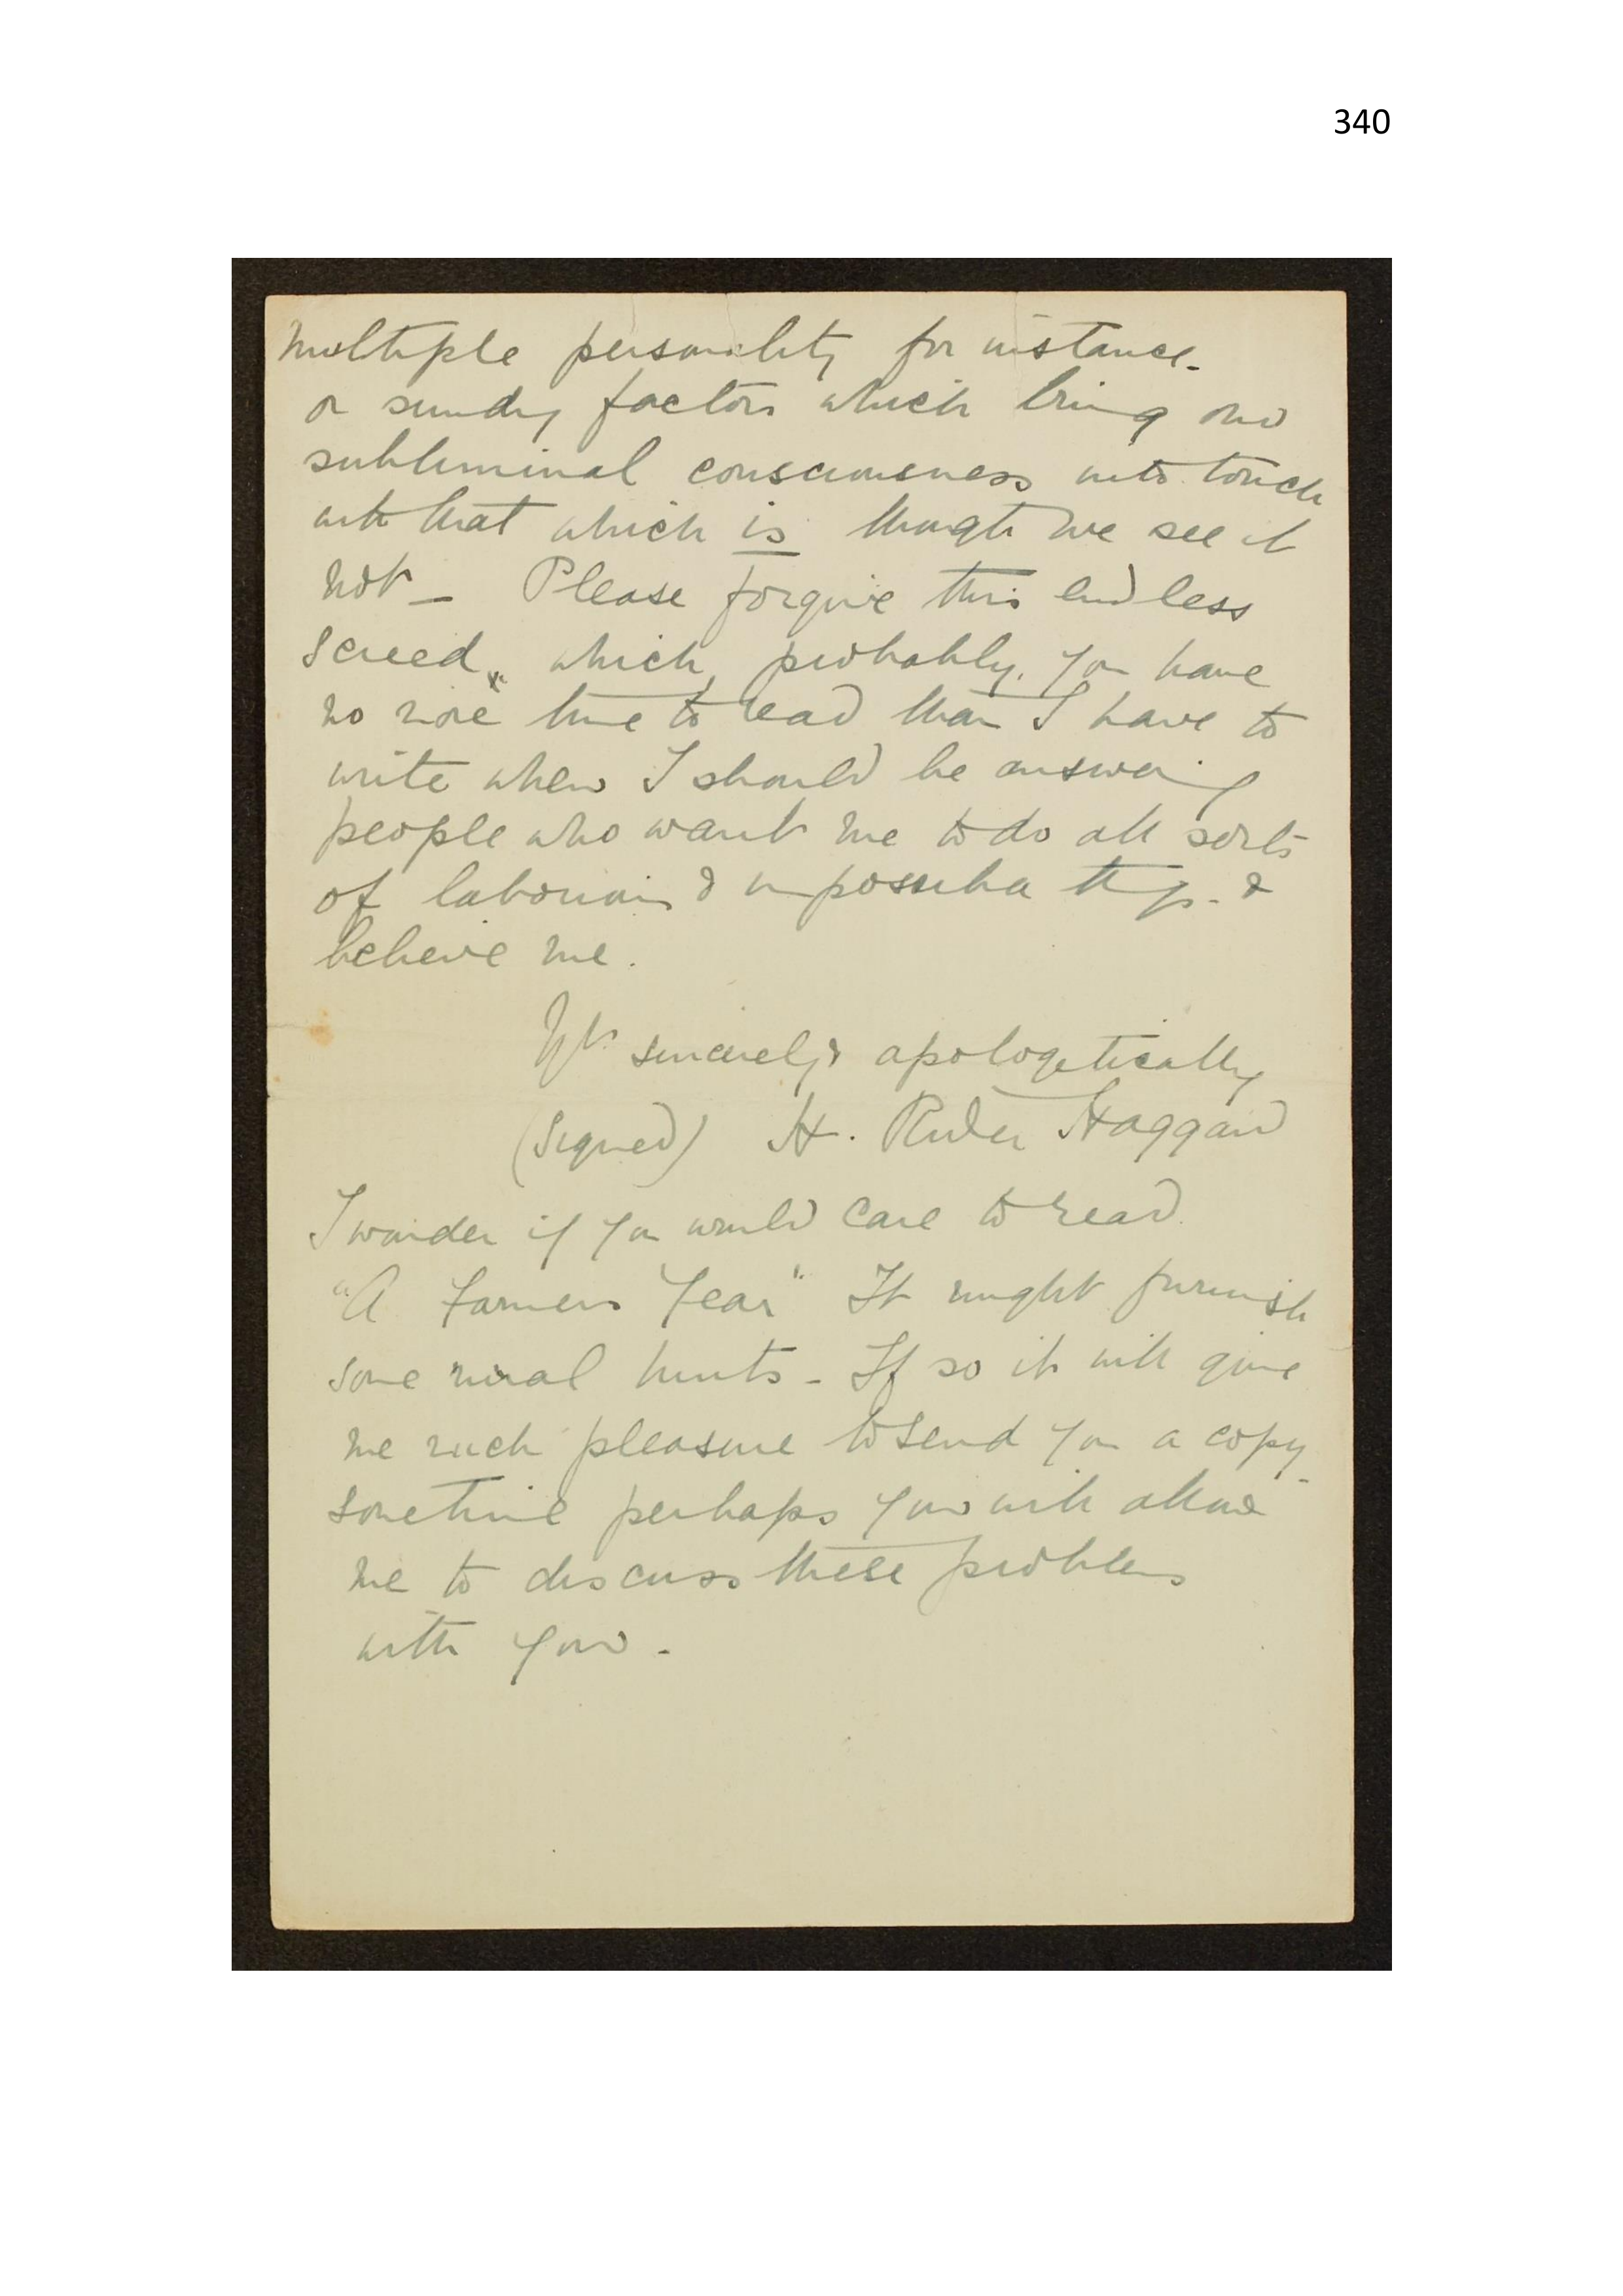 340
multiple personality for instance.
or sundry factors which bring our
subliminal consciousness into touch
with that which is though we see it
not – Please forgive this endless
screed, which, probably, you have
no more time to read than I have to
write when I should be answering
people who want me to do all sorts
of laborious & impossible things. &
believe me.
Yrs sincerely & apologetically
(signed) H. Rider Haggard
I wonder if you would care to read
"A Farmers Year" It might furnish
some rural hints – If so it will give
me much pleasure to send you a copy
sometime perhaps you will allow
me to discuss these problems
with you.